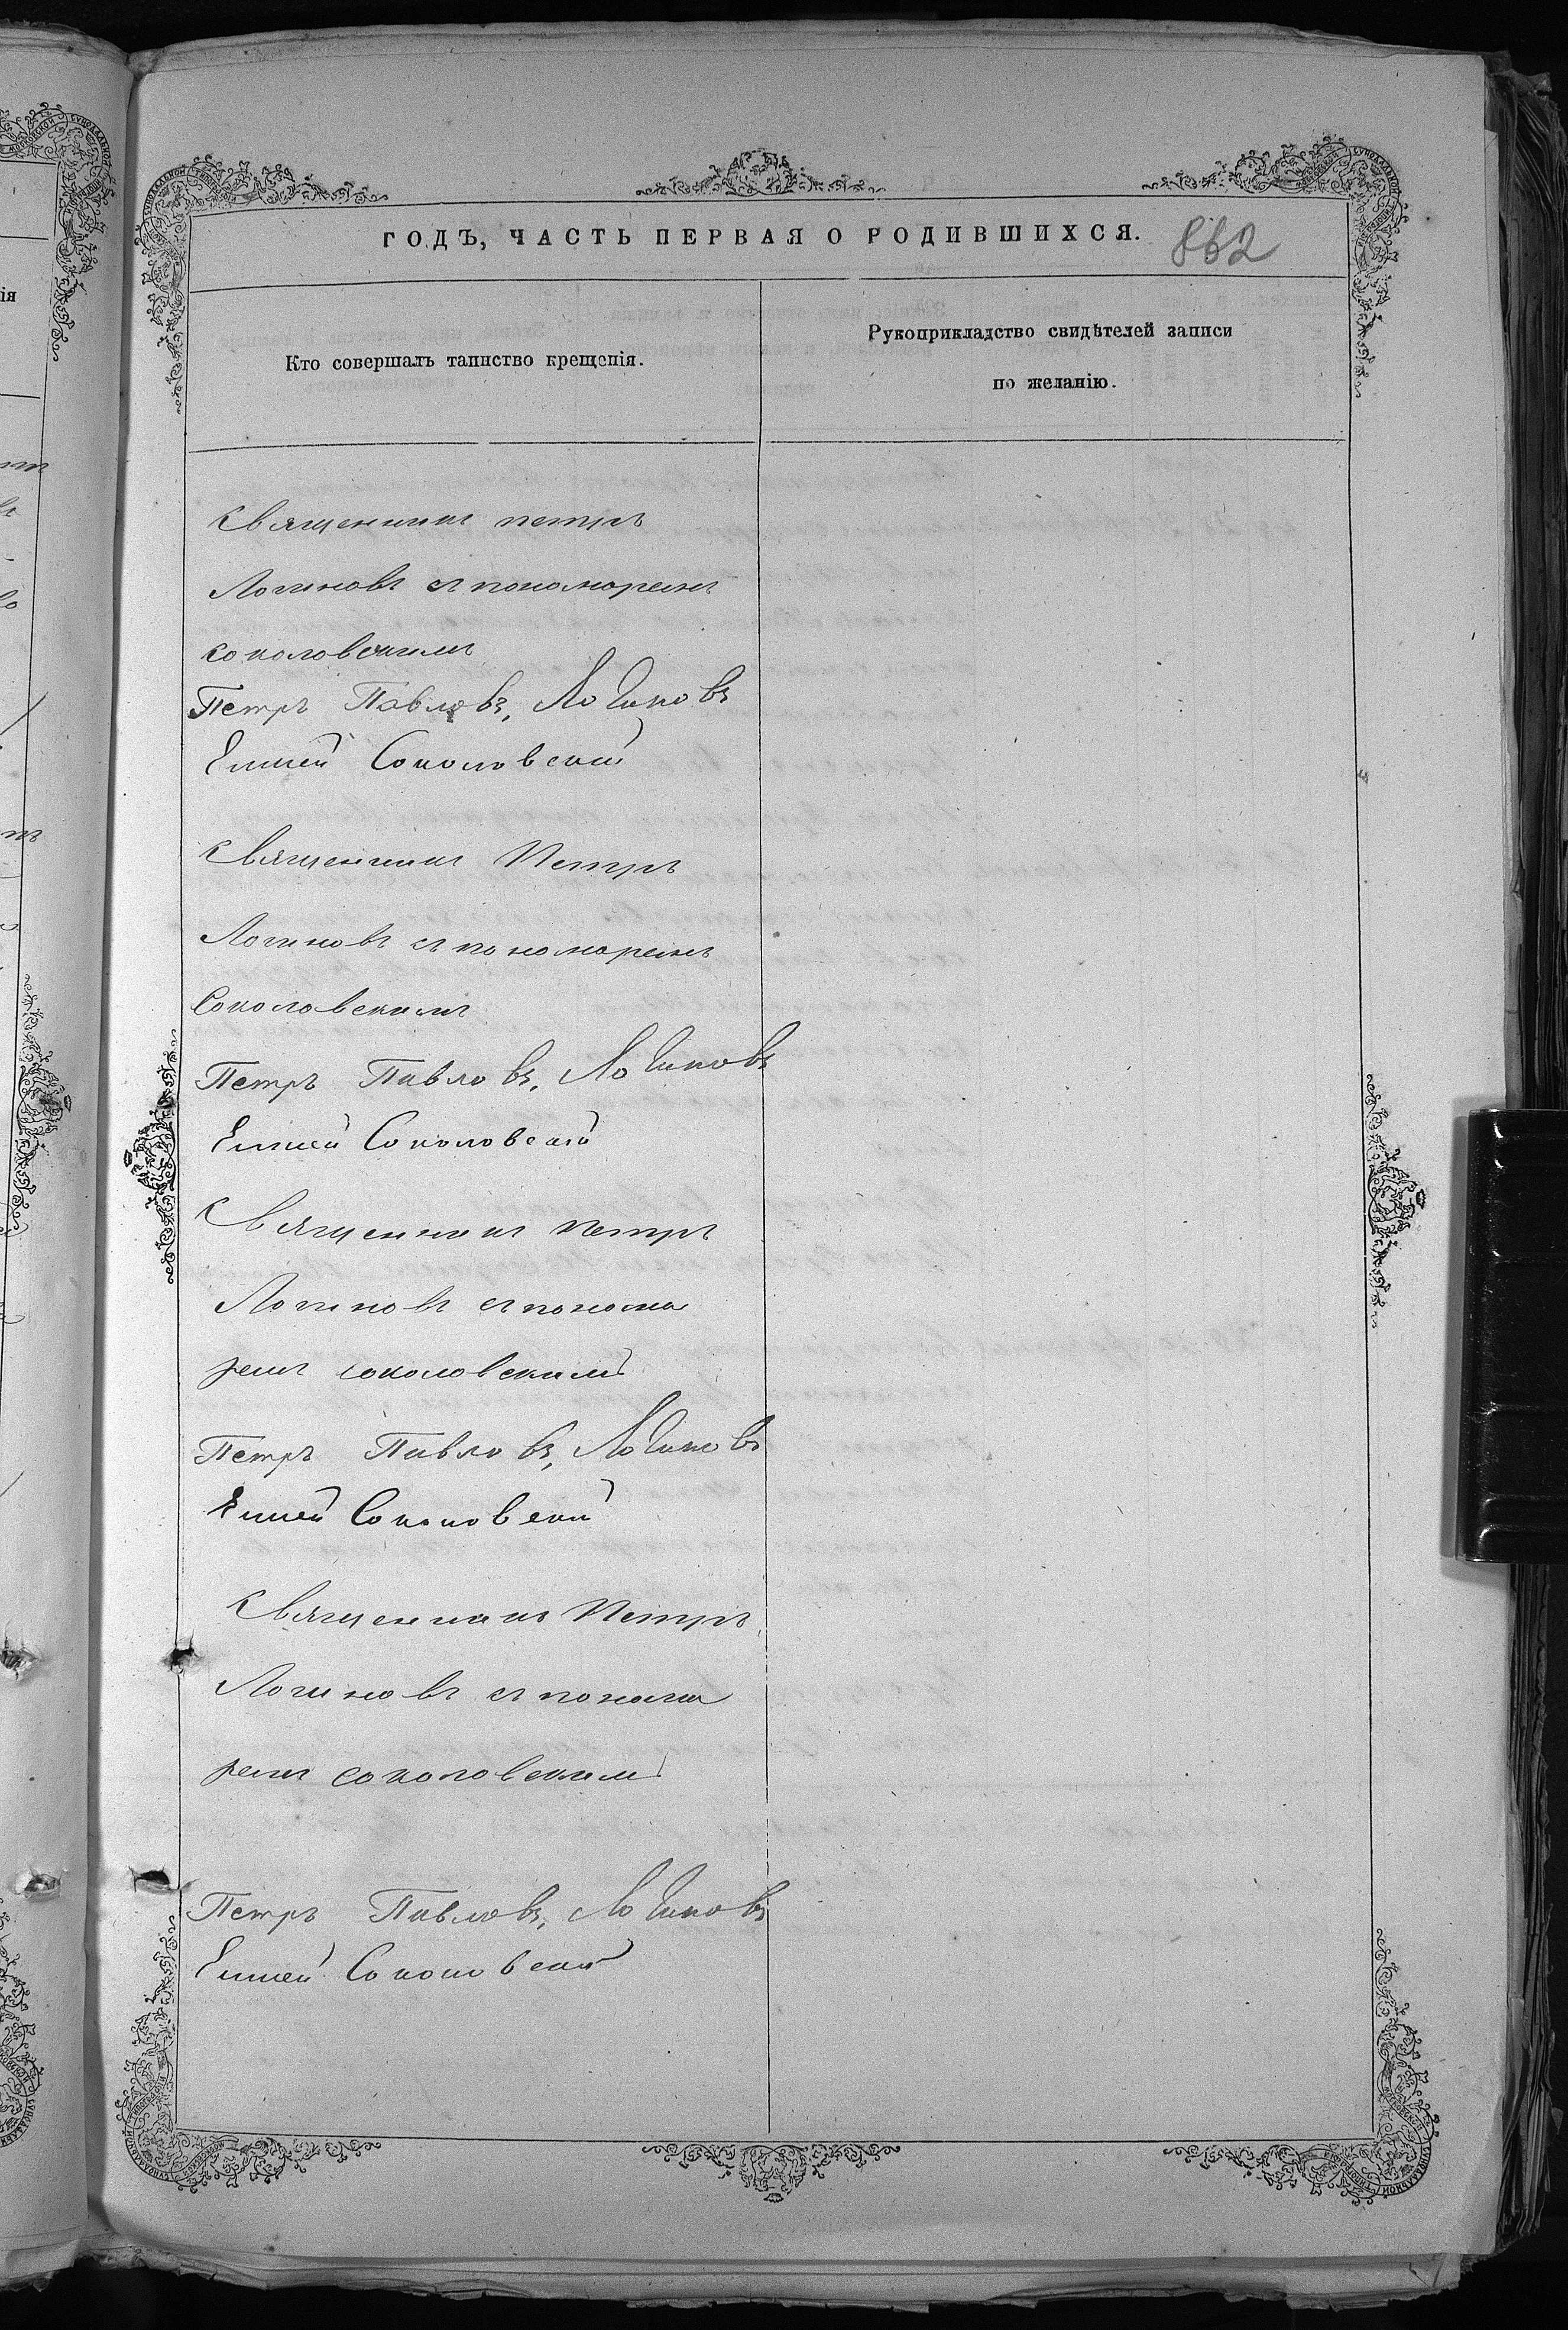 ГОДЪ, ЧАСТЬ ПЕРВАЯ О РОДИВШИХСЯ.
862
Кто совершалъ таинство крещенія.
Рукоприкладство свидѣтелей записи
по желанію.
Священникъ петръ
Логиновъ съ пономоремъ
соколовскимъ
Петръ Павловъ, Логиновъ
Елисей Соколовский
Священникъ Петръ
Логиновъ съ пономоремъ
Соколовскимъ
Петръ Павловъ, Логиновъ
Елисей Соколовский
Священникъ петръ
Логиновъ съ понома
ремъ соколовскимъ
Петръ Павловъ, Логиновъ
Елисей Соколовский
Священникъ Петръ
Логиновъ съ понома
ремъ соколовскимъ
Петръ Павловъ, Логиновъ
Елисей Соколовский